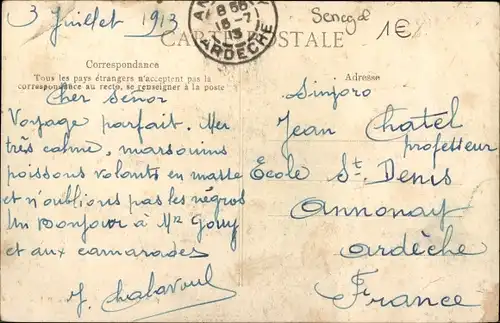 3 Juillet 1913
Senegal
1€
CARTE POSTALE
8 55
15-7
13
ARDECHE
Correspondance
Tous les pays étrangers n'acceptent pas la
correspondance au recto, se renseigner à la poste
Adresse
Cher Señor
Voyage parfait. Mer
très calme, marsouins
poissons volants en masse
et n'oublions pas les négros
Un Bonjour à Mr Gouy
et aux camarades
J. Chalavoul
Sinjoro
Jean Chatel
professeur
École St. Denis
Annonay
Ardèche
France